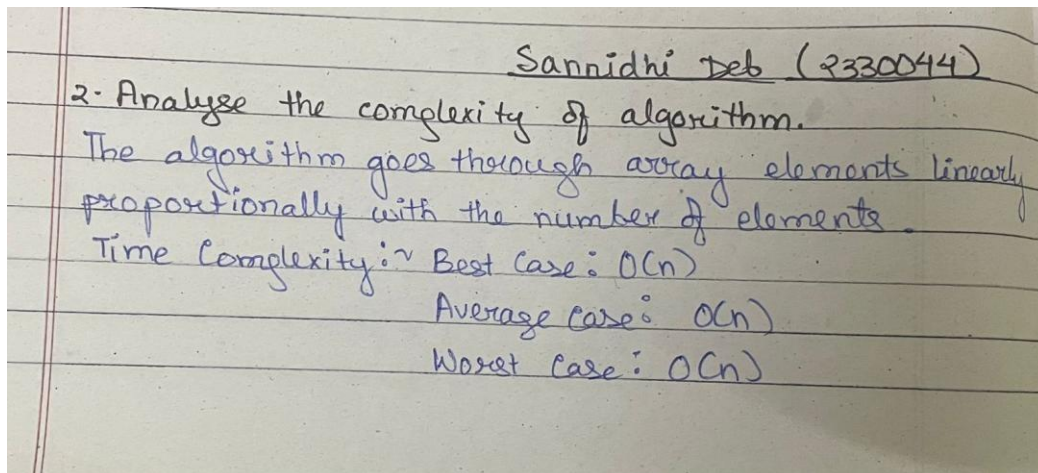 Sannidhi Deb (2330044)
2. Analyse the complexity of algorithm.
The algorithm goes through array elements linearly
proportionally with the number of elements.
Time Complexity :~ Best Case : O(n)
Average Case : O(n)
Worst Case : O(n)